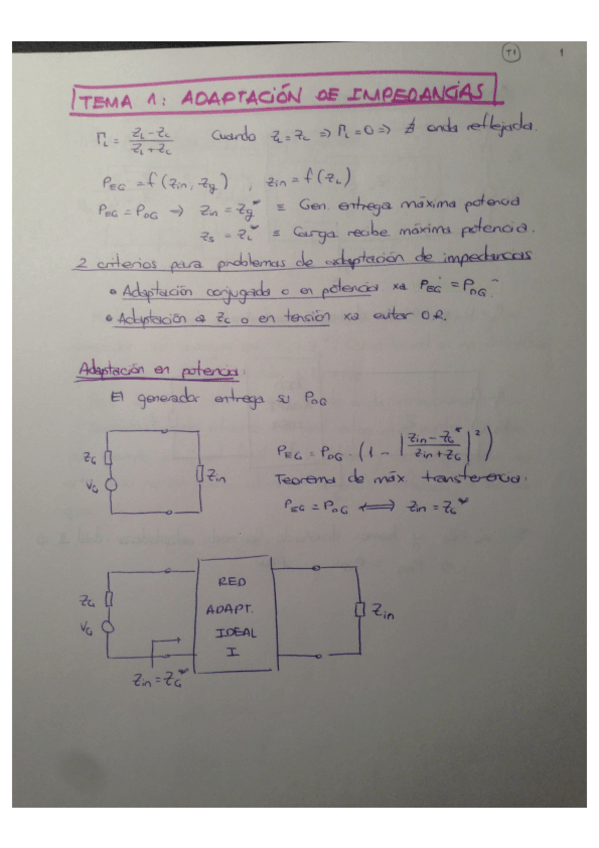 T1 1
TEMA 1: ADAPTACIÓN DE IMPEDANCIAS
Γ_L = (Z_L - Z_C)/(Z_L + Z_C) Cuando Z_L = Z_C => Γ_L = 0 => ∄ onda reflejada.
P_EG = f(Z_in, Z_g), Z_in = f(Z_L)
P_EG = P_DG => Z_in = Z_g* ≡ Gen. entrega máxima potencia
Z_s = Z_L* ≡ Carga recibe máxima potencia.
2 criterios para problemas de adaptación de impedancias
• Adaptación conjugada o en potencia xa P_EG = P_DG.
• Adaptación a Z_C o en tensión xa evitar O.R.
Adaptación en potencia.
El generador entrega su P_DG
Z_G
V_G
Z_in
P_EG = P_DG · (1 - |(Z_in - Z_G*)/(Z_in + Z_G)|²)
Teorema de máx. transferencia.
P_EG = P_DG <=> Z_in = Z_G*
Z_G
V_G
RED
ADAPT.
IDEAL
I
Z_in
Z_in = Z_G*